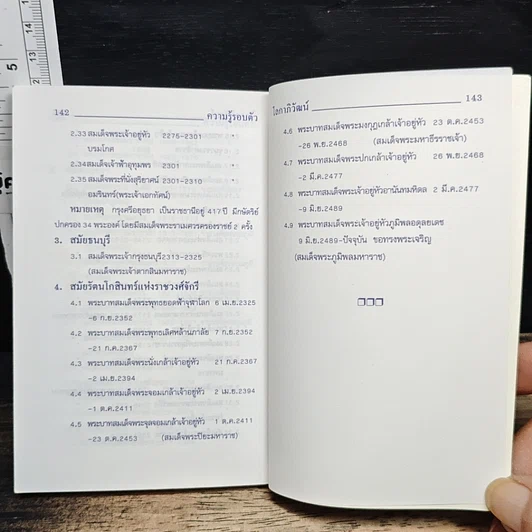 142 ความรู้รอบตัว
2.33 สมเด็จพระเจ้าอยู่หัว 2275-2301
บรมโกศ
2.34 สมเด็จเจ้าฟ้าอุทุมพร 2301
2.35 สมเด็จพระที่นั่งสุริยาศน์ 2301-2310
อมรินทร์(พระเจ้าเอกทัศน์)
หมายเหตุ กรุงศรีอยุธยา เป็นราชธานีอยู่ 417 ปี มีกษัตริย์
ปกครอง 34 พระองค์ โดยมีสมเด็จพระราเมศวรครองราชย์ 2 ครั้ง
3. สมัยธนบุรี
3.1 สมเด็จพระเจ้ากรุงธนบุรี 2313-2325
(สมเด็จพระเจ้าตากสินมหาราช)
4. สมัยรัตนโกสินทร์แห่งราชวงศ์จักรี
4.1 พระบาทสมเด็จพระพุทธยอดฟ้าจุฬาโลก 6 เม.ย.2325
-6 ก.ย.2352
4.2 พระบาทสมเด็จพระพุทธเลิศหล้านภาลัย 7 ก.ย.2352
-21 ก.ค.2367
4.3 พระบาทสมเด็จพระนั่งเกล้าเจ้าอยู่หัว 21 ก.ค.2367
-2 เม.ย.2394
4.4 พระบาทสมเด็จพระจอมเกล้าเจ้าอยู่หัว 2 เม.ย.2394
-1 ต.ค.2411
4.5 พระบาทสมเด็จพระจุลจอมเกล้าเจ้าอยู่หัว 1 ต.ค.2411
-23 ต.ค.2453 (สมเด็จพระปิยะมหาราช)
โลกาภิวัฒน์ 143
4.6 พระบาทสมเด็จพระมงกุฎเกล้าเจ้าอยู่หัว 23 ต.ค.2453
-26 พ.ย.2468 (สมเด็จพระมหาธีรราชเจ้า)
4.7 พระบาทสมเด็จพระปกเกล้าเจ้าอยู่หัว 26 พ.ย.2468
-2 มี.ค.2477
4.8 พระบาทสมเด็จพระเจ้าอยู่หัวอานันทมหิดล 2 มี.ค.2477
-9 มิ.ย.2489
4.9 พระบาทสมเด็จพระเจ้าอยู่หัวภูมิพลอดุลยเดช
9 มิ.ย.2489-ปัจจุบัน ขอทรงพระเจริญ
(สมเด็จพระภูมิพลมหาราช)
5